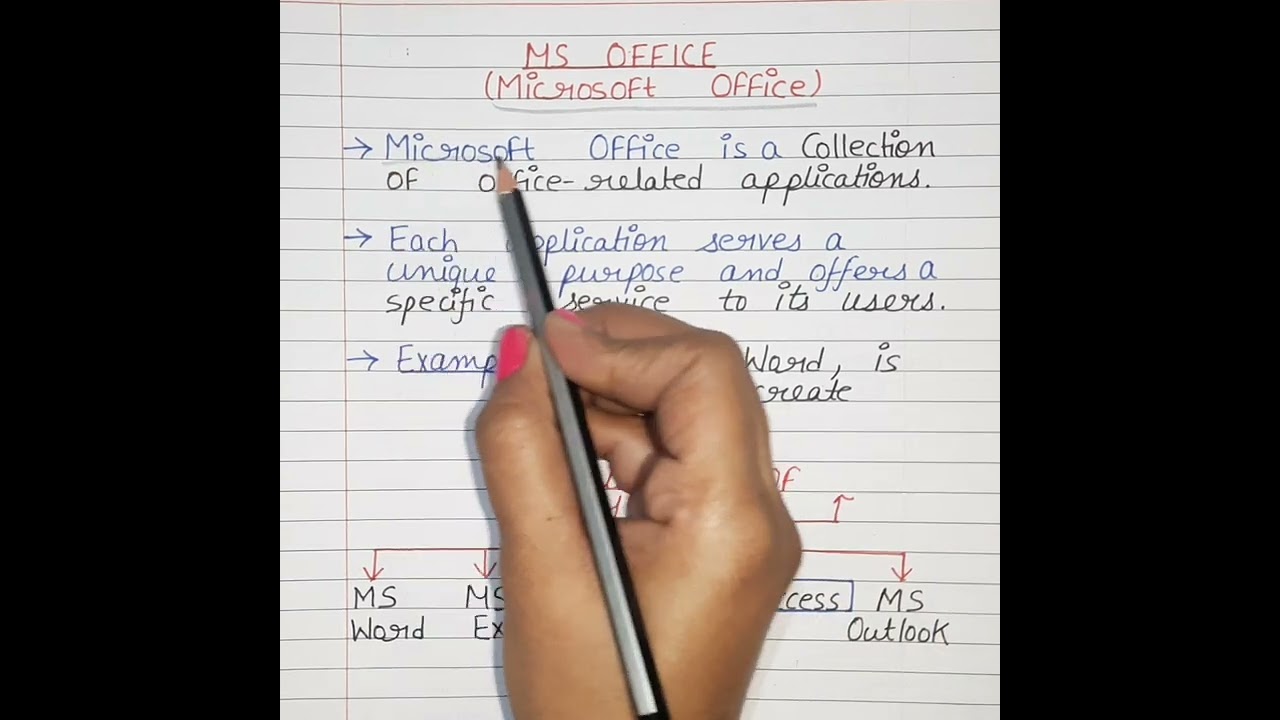 MS OFFICE
(Microsoft Office)
→ Microsoft Office is a Collection
of office-related applications.
→ Each application serves a
unique purpose and offers a
specific service to its users.
→ Word, is
create
of
MS MS MS
Word Outlook